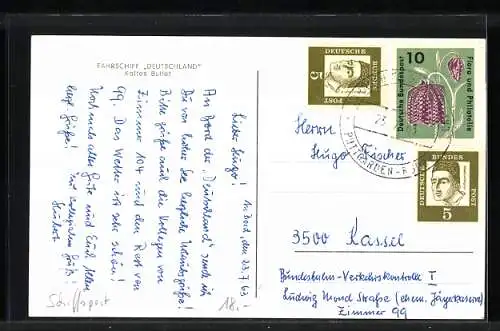 FÄHRSCHIFF „DEUTSCHLAND“
Kaltes Büfet
An Bord, den 23.7.63
Lieber Hugo!
An Bord der „Deutschland“ sende ich
Du von hoher See herzliche Urlaubsgrüße!
Bitte grüße auch die Kollegen von
Zimmer 104 und den Rest von
99. Das Wetter ist sehr schön!
Nochmals alles Gute und Euch Allen
herzl. Grüße!
Schiffspost
18,-
DEUTSCHE
BUNDESPOST
5
10
Deutsche Bundespost
Flora und Philatelie
DEUTSCHE
BUNDESPOST
5
23
Herrn
Hugo Fischer
3500 Kassel
Bundesbahn-Verkehrskontrolle I
Ludwig Mond Straße (ehem. Jägerkaserne)
Zimmer 99